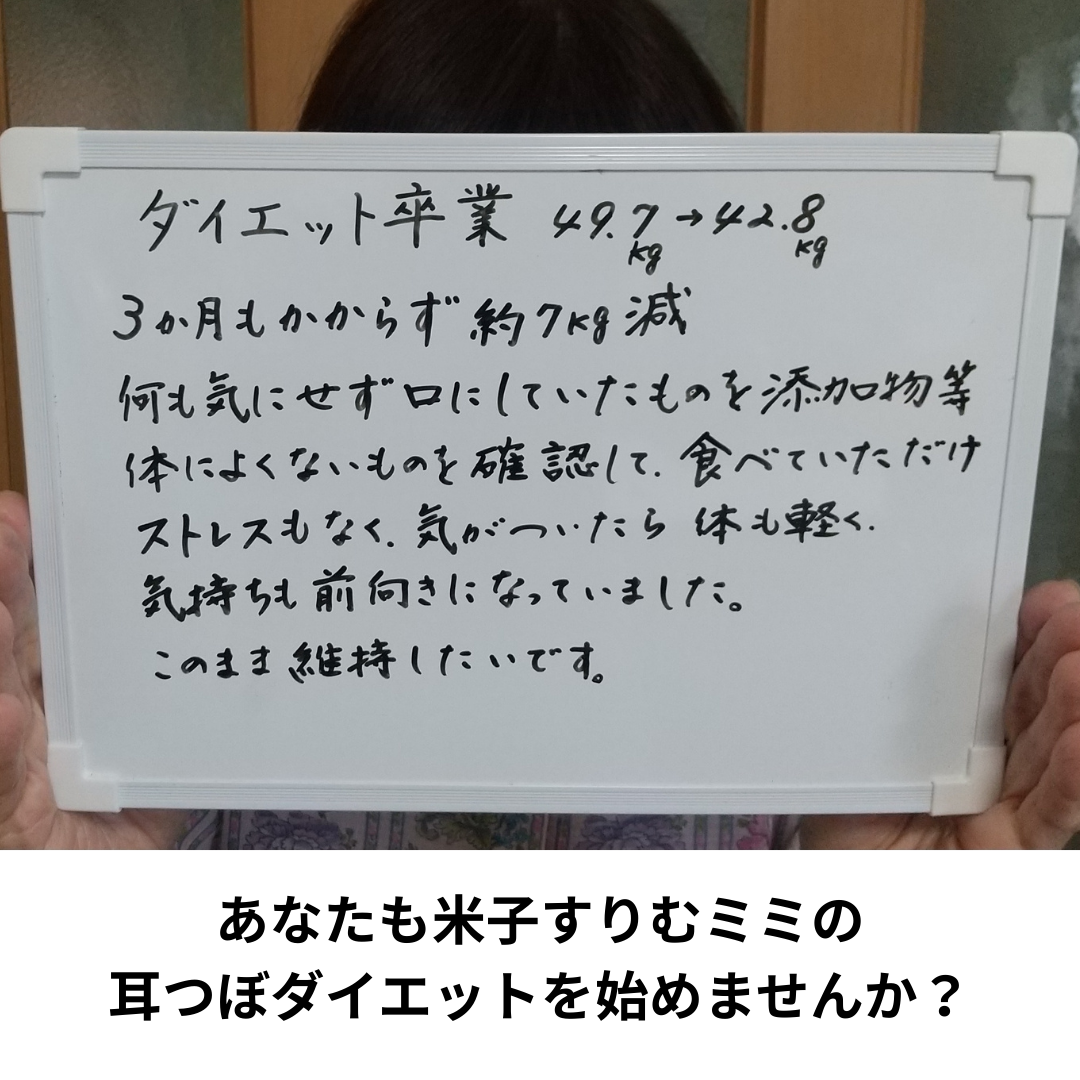 ダイエット卒業 49.7kg→42.8kg
3か月もかからず約7kg減
何も気にせず口にしていたものを添加物等
体によくないものを確認して、食べていただけ
ストレスもなく、気がついたら体も軽く、
気持ちも前向きになっていました。
このまま維持したいです。
あなたも米子すりむミミの
耳つぼダイエットを始めませんか？